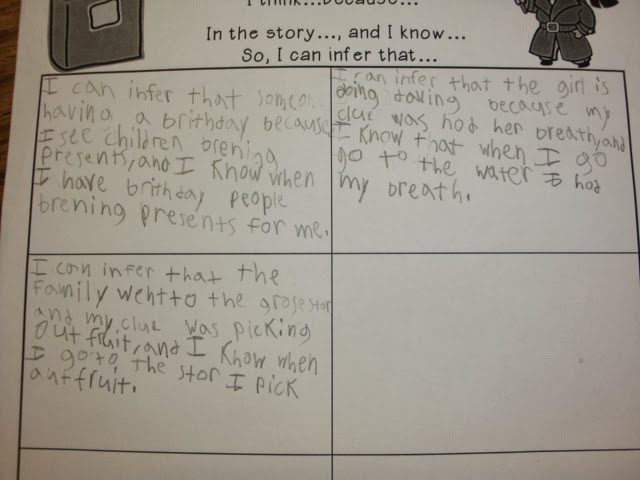 I think...because...
In the story..., and I know...
So, I can infer that...
I can infer that someon
having a brithday because
I see children brening
presents,and I Know when
I have brithday people
brening presents for me.
I can infer that the girl is
doing daving because my
clue was hod her breath,and
I Know that when I go
go to the water I hod
my breath.
I can infer that the
Family went to the grosestor
and my clue was picking
out fruit,and I Know when
I go to the stor I pick
autfruit.